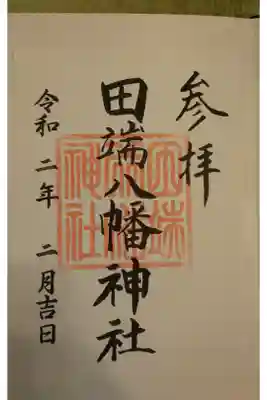 参拝
田端八幡神社
令和二年二月吉日